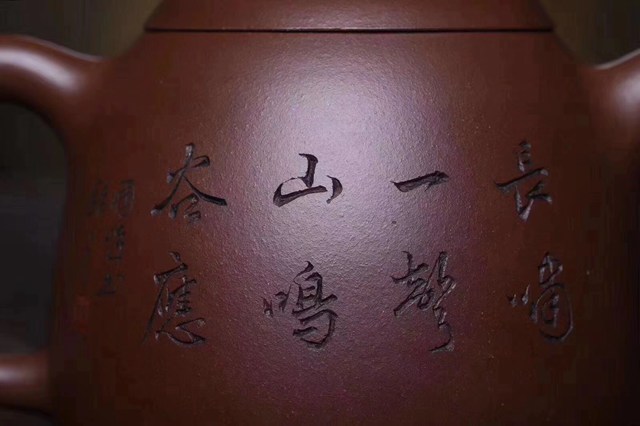 長嘯
一聲
山鳴
谷應